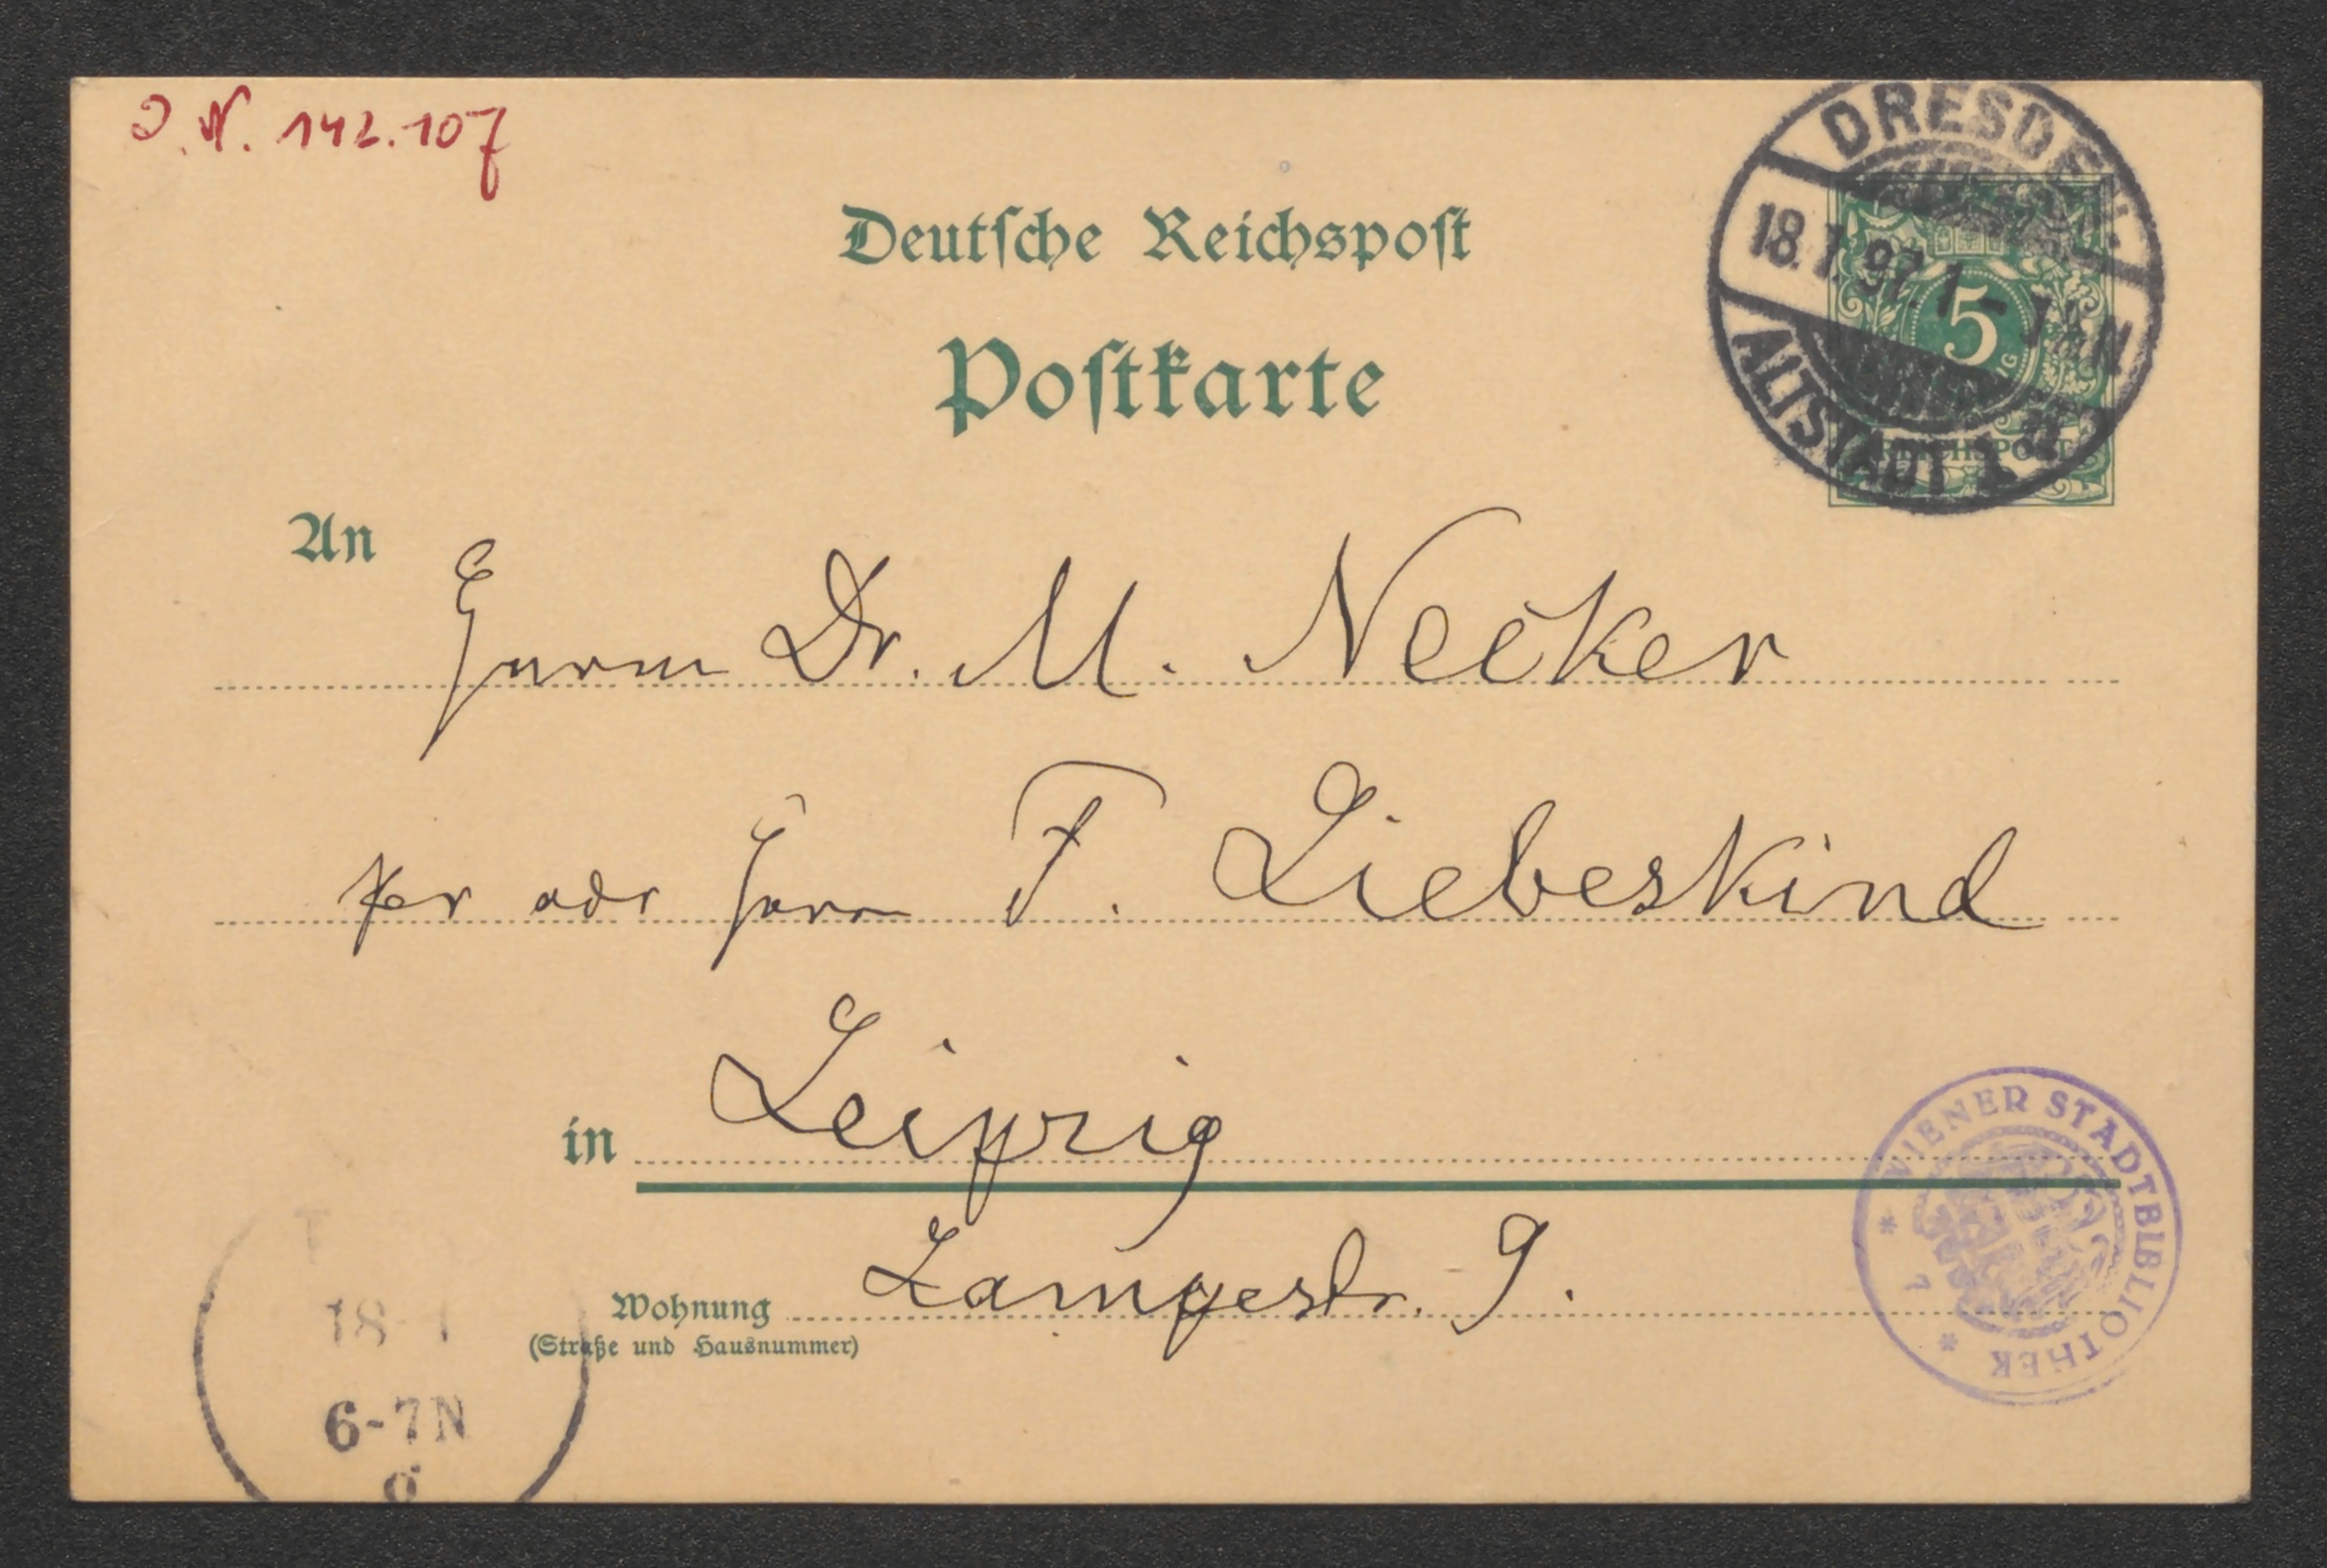 J. N. 142.107
Deutsche Reichspost
Postkarte
DRESDEN.
18.1.97.1-
N
ALTSTADT 1
5
REICHSPOST
An
Herrn Dr. M. Necker
per adr Herrn F. Liebeskind
in Leipzig
Wohnung Lampestr. 9.
(Straße und Hausnummer)
* WIENER STADTBIBLIOTHEK *
18 1
6-7N